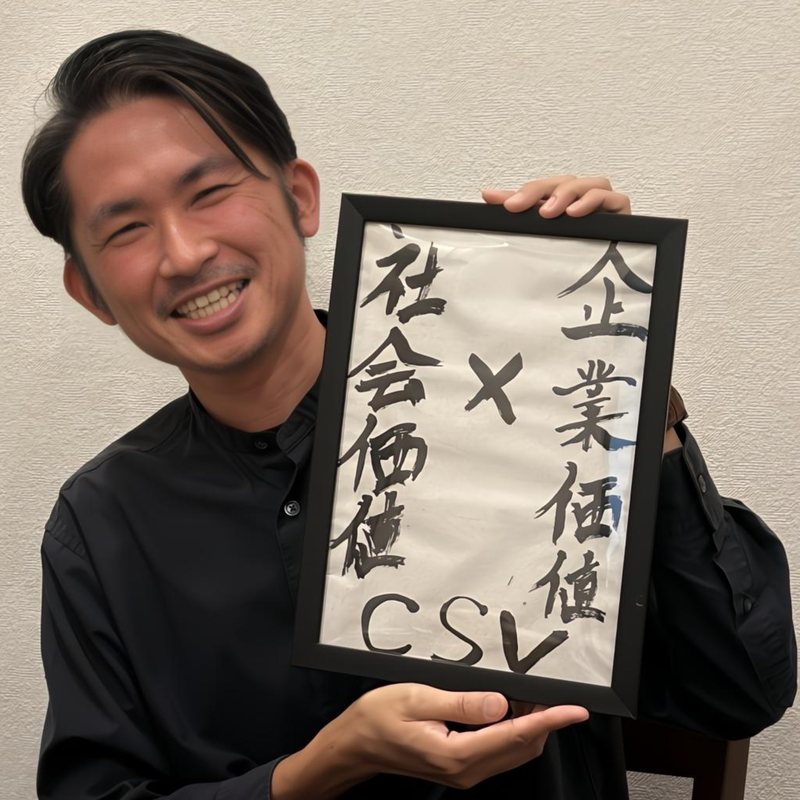 企業価値
×
社会価値
CSV